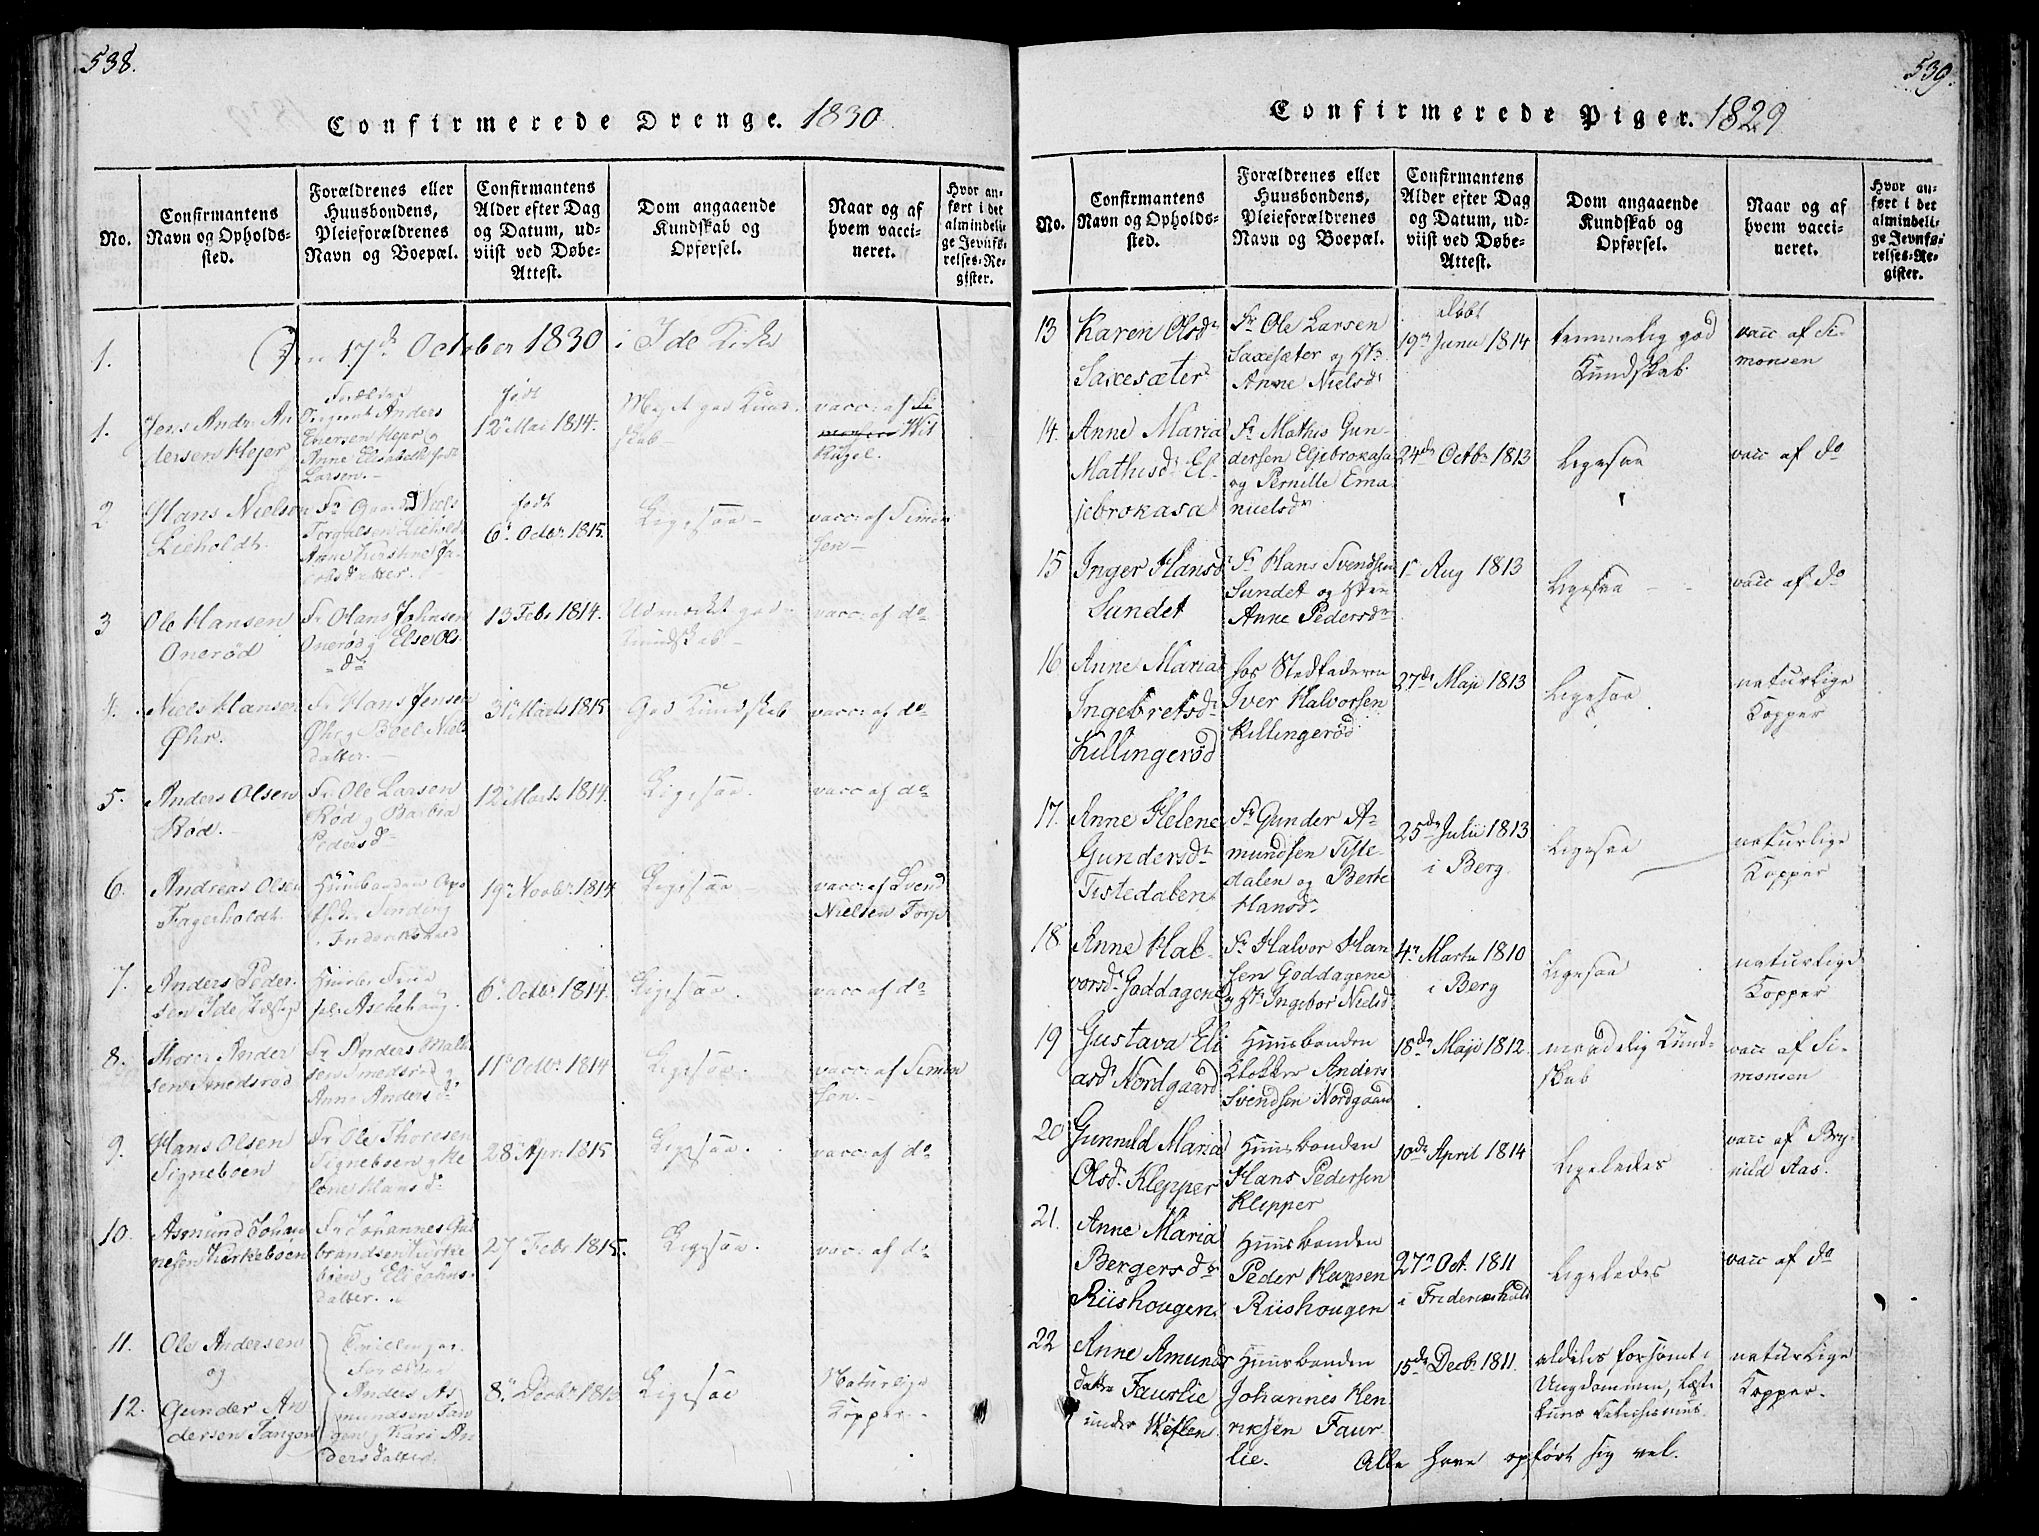 538.
Confirmerede Drenge. 1830
No.
Confirmantens
Navn og Opholds-
sted.
Forældrenes eller
Huusbondens,
Pleieforældrenes
Navn og Boepæl.
Confirmantens
Alder efter Dag
og Datum, ud-
viist ved Døbe-
Attest.
Dom angaaende
Kundskab og
Opførsel.
Naar og af
hvem vacci-
neret.
Hvor an-
ført i det
almindeli-
ge Jevnfø-
relses-Re-
gister.
1.
17de October 1830 i Ide Kirke
1.
Jens Andr. An
dersen Hejer
Forældre
Anders
Enersen Hejer og
Anne Elisabeth
Larsen.
født
12te Mai 1814.
Meget god Kund-
skab
vacc: af
Wit
Kugel.
2
Hans Nielsen
Lieholdt.
Fr Niels
Torgalsen Lieholdt
Anne Kirstine Ja
cobsdatter.
født
6te Octbr 1815.
Ligesaa
vacc: af Simon
sen
3
Ole Hansen
Onerød
Fr Hans Johnsen
Onerød og Else Ols
dr
13 Febr 1814.
Udmærket god
Kundskab
vacc: af do
4.
Niels Hansen
Øhr.
Fr Hans Jensen
Øhr og Boel Niels
datter.
31te Marts 1815
God Kundskab
vacc: af do
5.
Anders Olsen
Rød.
Fr Ole Larsen
Rød og Barbra
Pedersdr
12te Marts 1814.
Ligesaa.
vacc af do
6.
Andreas Olsen
Fagerholdt.
Huusbonden Apo
theker Sending
i Fredrikshald
19te Novbr 1814
Ligesaa
vacc: af Svend
Nielsen Torp
7.
Anders Peder
sen Ide
Aschehoug.
6te Octbr 1814.
Ligesaa.
vacc: af do
8.
Thorer Ander
sen Smedsrød
Fr Anders Mathi
sen Smedsrød og
Anne Andersdr
11te Octbr 1814
Ligesaa.
vacc: af Simon
sen
9.
Hans Olsen
Signeboen
Fr Ole Thoresen
Signeboen og He
lene Hansdr
28te Apr: 1815
Ligesaa.
vacc: af do
10.
Asmund Johan
nesen Kirkeboen
Fr Johannes Gul
brandsen Kirke
boen og Eli Johns-
datter.
27te Febr 1815.
Ligesaa.
vacc: af do
11.
Ole Andersen
og
12.
Gunder An
dersen Tangen
Tvillinger
Forældre
Anders As
mundsen Tan
gen og Kari An
dersdatter.
8de Decbr 1813
Ligesaa
Naturlige
Kopper.
539.
Confirmerede Piger. 1829
No.
Confirmantens
Navn og Opholds-
sted.
Forældrenes eller
Huusbondens,
Pleieforældrenes
Navn og Boepæl.
Confirmantens
Alder efter Dag
og Datum, ud-
viist ved Døbe-
Attest.
Dom angaaende
Kundskab og
Opførsel.
Naar og af
hvem vacci-
neret.
Hvor an-
ført i det
almindeli-
ge Jevnfø-
relses-Re-
gister.
13
Karen Olsdr
Saxesæter
Fr Ole Larsen
Saxesæter og Hst:
Anne Nielsdr
døbt
19de Junii 1814
temmelig god
Kundskab.
vacc af Si-
monsen
14.
Anne Maria
Mathisdr El-
jebrokasa
Fr Mathis Gun-
dersen Eljebrokasa
og Pernille Ema
nuelsdr
24de Octbr 1813
Ligesaa
vacc af do
15
Inger Hansdr
Sundet
Fr Hans Svendsen
Sundet og Hstru
Anne Pedersdr
1te Aug 1813
Ligesaa
vacc af do
16
Anne Maria
Ingebretsdr
Killingerød
hos Stedfaderen
Iver Halvorsen
Killingerød
27de Maji 1813
Ligesaa
naturlige
Kopper
17.
Anne Helene
Gundersdr
Tistedalen
Fr Gunder A-
mundsen Tiste-
dalen og Berte
Hansdr
25de Julii 1813
i Berg
Ligesaa
naturlige
Kopper
18
Anne Hal-
vorsdr Goddagene
Fr Halvor Han
sen Goddagene
og Hst: Ingebor Nielsd
4de Marts 1810
i Berg
Ligesaa
naturlige
Kopper
19
Gustava Eli
asdr Nordgaard
Huusbonden
Klokker Anders
Svendsen Nordgaard
18de Maji 1812.
maadelig Kund-
skab
vacc af Si-
monsen
20
Gunnild Maria
Olsdr Klepper
Huusbonden
Hans Pedersen
Klepper
10de April 1814
Ligeledes
vacc af Bry-
nild Aas.
21.
Anne Maria
Bergersdr
Riishougen
Huusbonden
Peder Hansen
Riishougen
27de Oct. 1811
i Frederikshald
Ligeledes
vacc af do
22
Anne Amunds
datter Faurlie
under Weflen
Huusbonden
Johannes Hen
riksen Faur
lie.
15de Decbr 1811.
aldeles forsømt i
Ungdommen, læste
kuns Catechismus.
naturlige
Kopper.
Alle have opført sig vel.